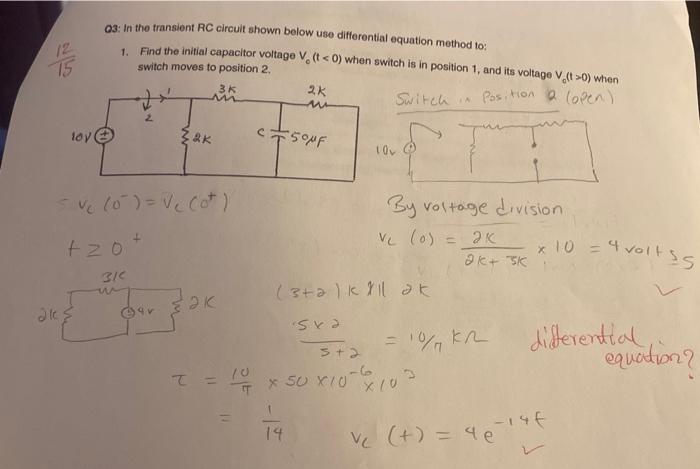 Q3: In the transient RC circuit shown below use differential equation method to:
12/15
1. Find the initial capacitor voltage Vc (t < 0) when switch is in position 1, and its voltage Vc(t >0) when
switch moves to position 2.
Switch in Position 2 (open)
1
3K
2K
2
10V
2K
C
50μF
10v
Vc (0⁻) = Vc (0⁺)
By voltage division
t ≥ 0⁺
Vc (0) = 2K / 2K + 3K × 10 = 4 volts
5
3K
2K
4v
2K
(3+2) K || 2K
5x2 / 5+2 = 10/7 KΩ
differential
equation?
τ = 10/7 × 50 × 10⁻⁶ × 10³
= 1/14
Vc (t) = 4e^-14t